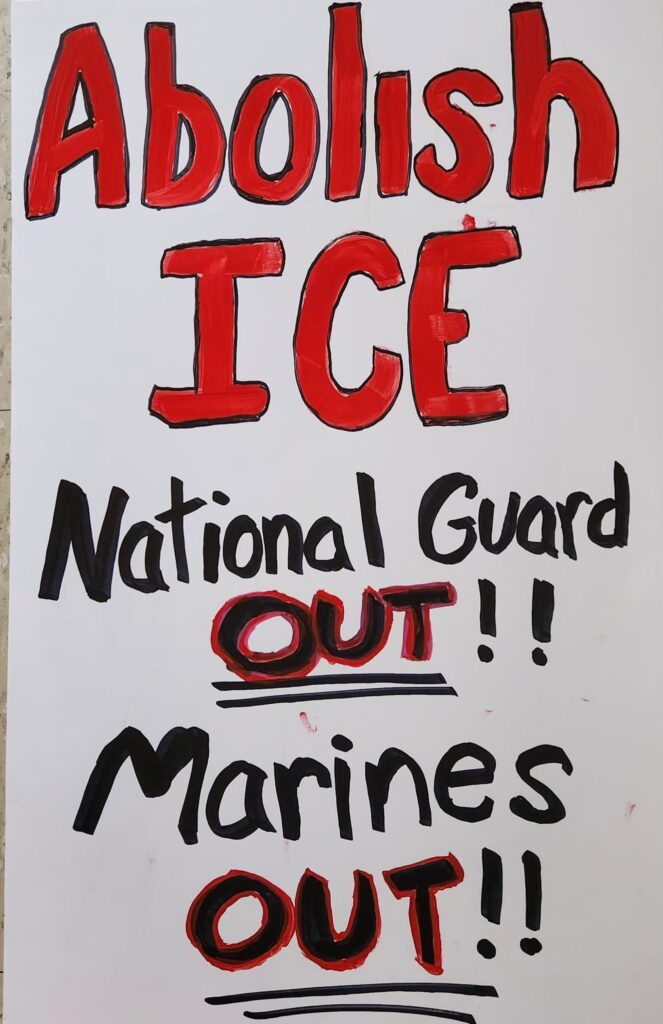 Abolish
ICE
National Guard
OUT!!
Marines
OUT!!